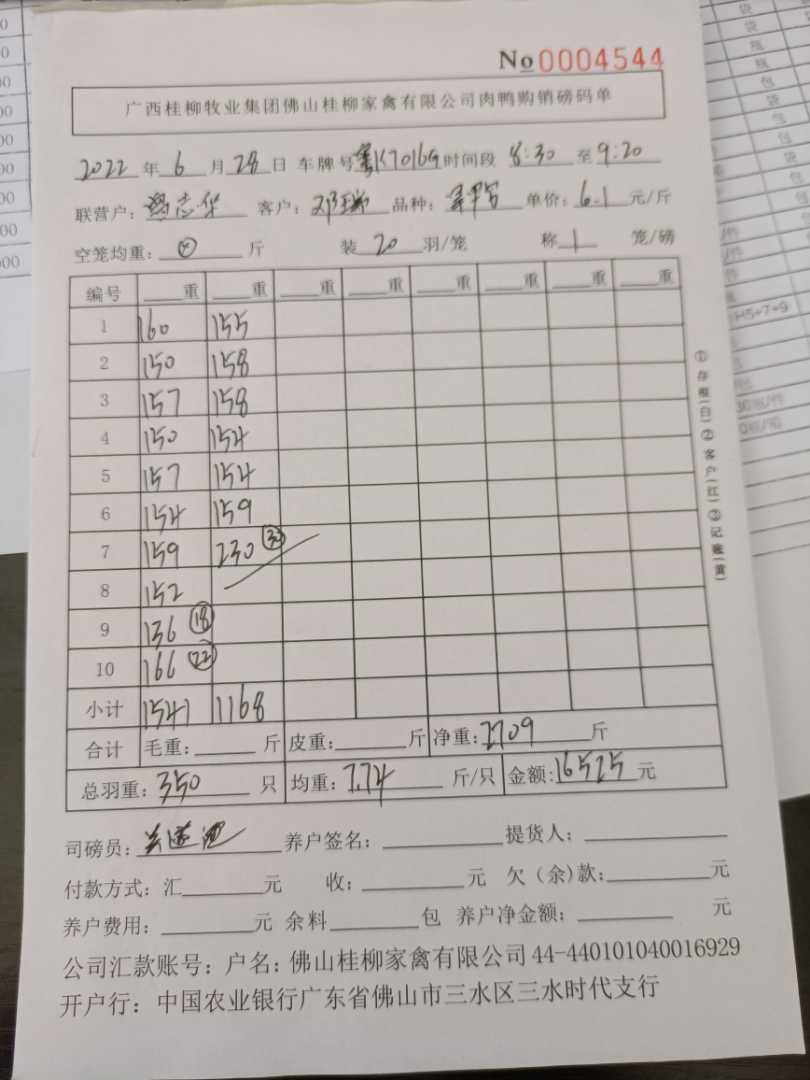 No 0004544
广西桂柳牧业集团佛山桂柳家禽有限公司肉鸭购销磅码单
2022 年 6 月 28 日 车牌号 粤K7016G 时间段 8:30 至 9:20
联营户: 志华 客户: 邓瑞 品种: 单价: 6.1 元/斤
空笼均重: 斤 装 20 羽/笼 称 1 笼/磅
编号 重 重 重 重 重 重 重 重
1 160 155
2 150 158
3 157 158
4 150 154
5 157 154
6 154 159
7 159 230 (30)
8 152
9 136 (18)
10 166 (22)
小计 1541 1168
合计 毛重: 斤 皮重: 斤 净重: 2709 斤
总羽重: 350 只 均重: 7.74 斤/只 金额: 16525 元
司磅员: 养户签名: 提货人:
付款方式: 汇 元 收: 元 欠(余)款: 元
养户费用: 元 余料 包 养户净金额: 元
公司汇款账号: 户名: 佛山桂柳家禽有限公司 44-440101040016929
开户行: 中国农业银行广东省佛山市三水区三水时代支行
①存根(白)②客户(红)③记账(黄)